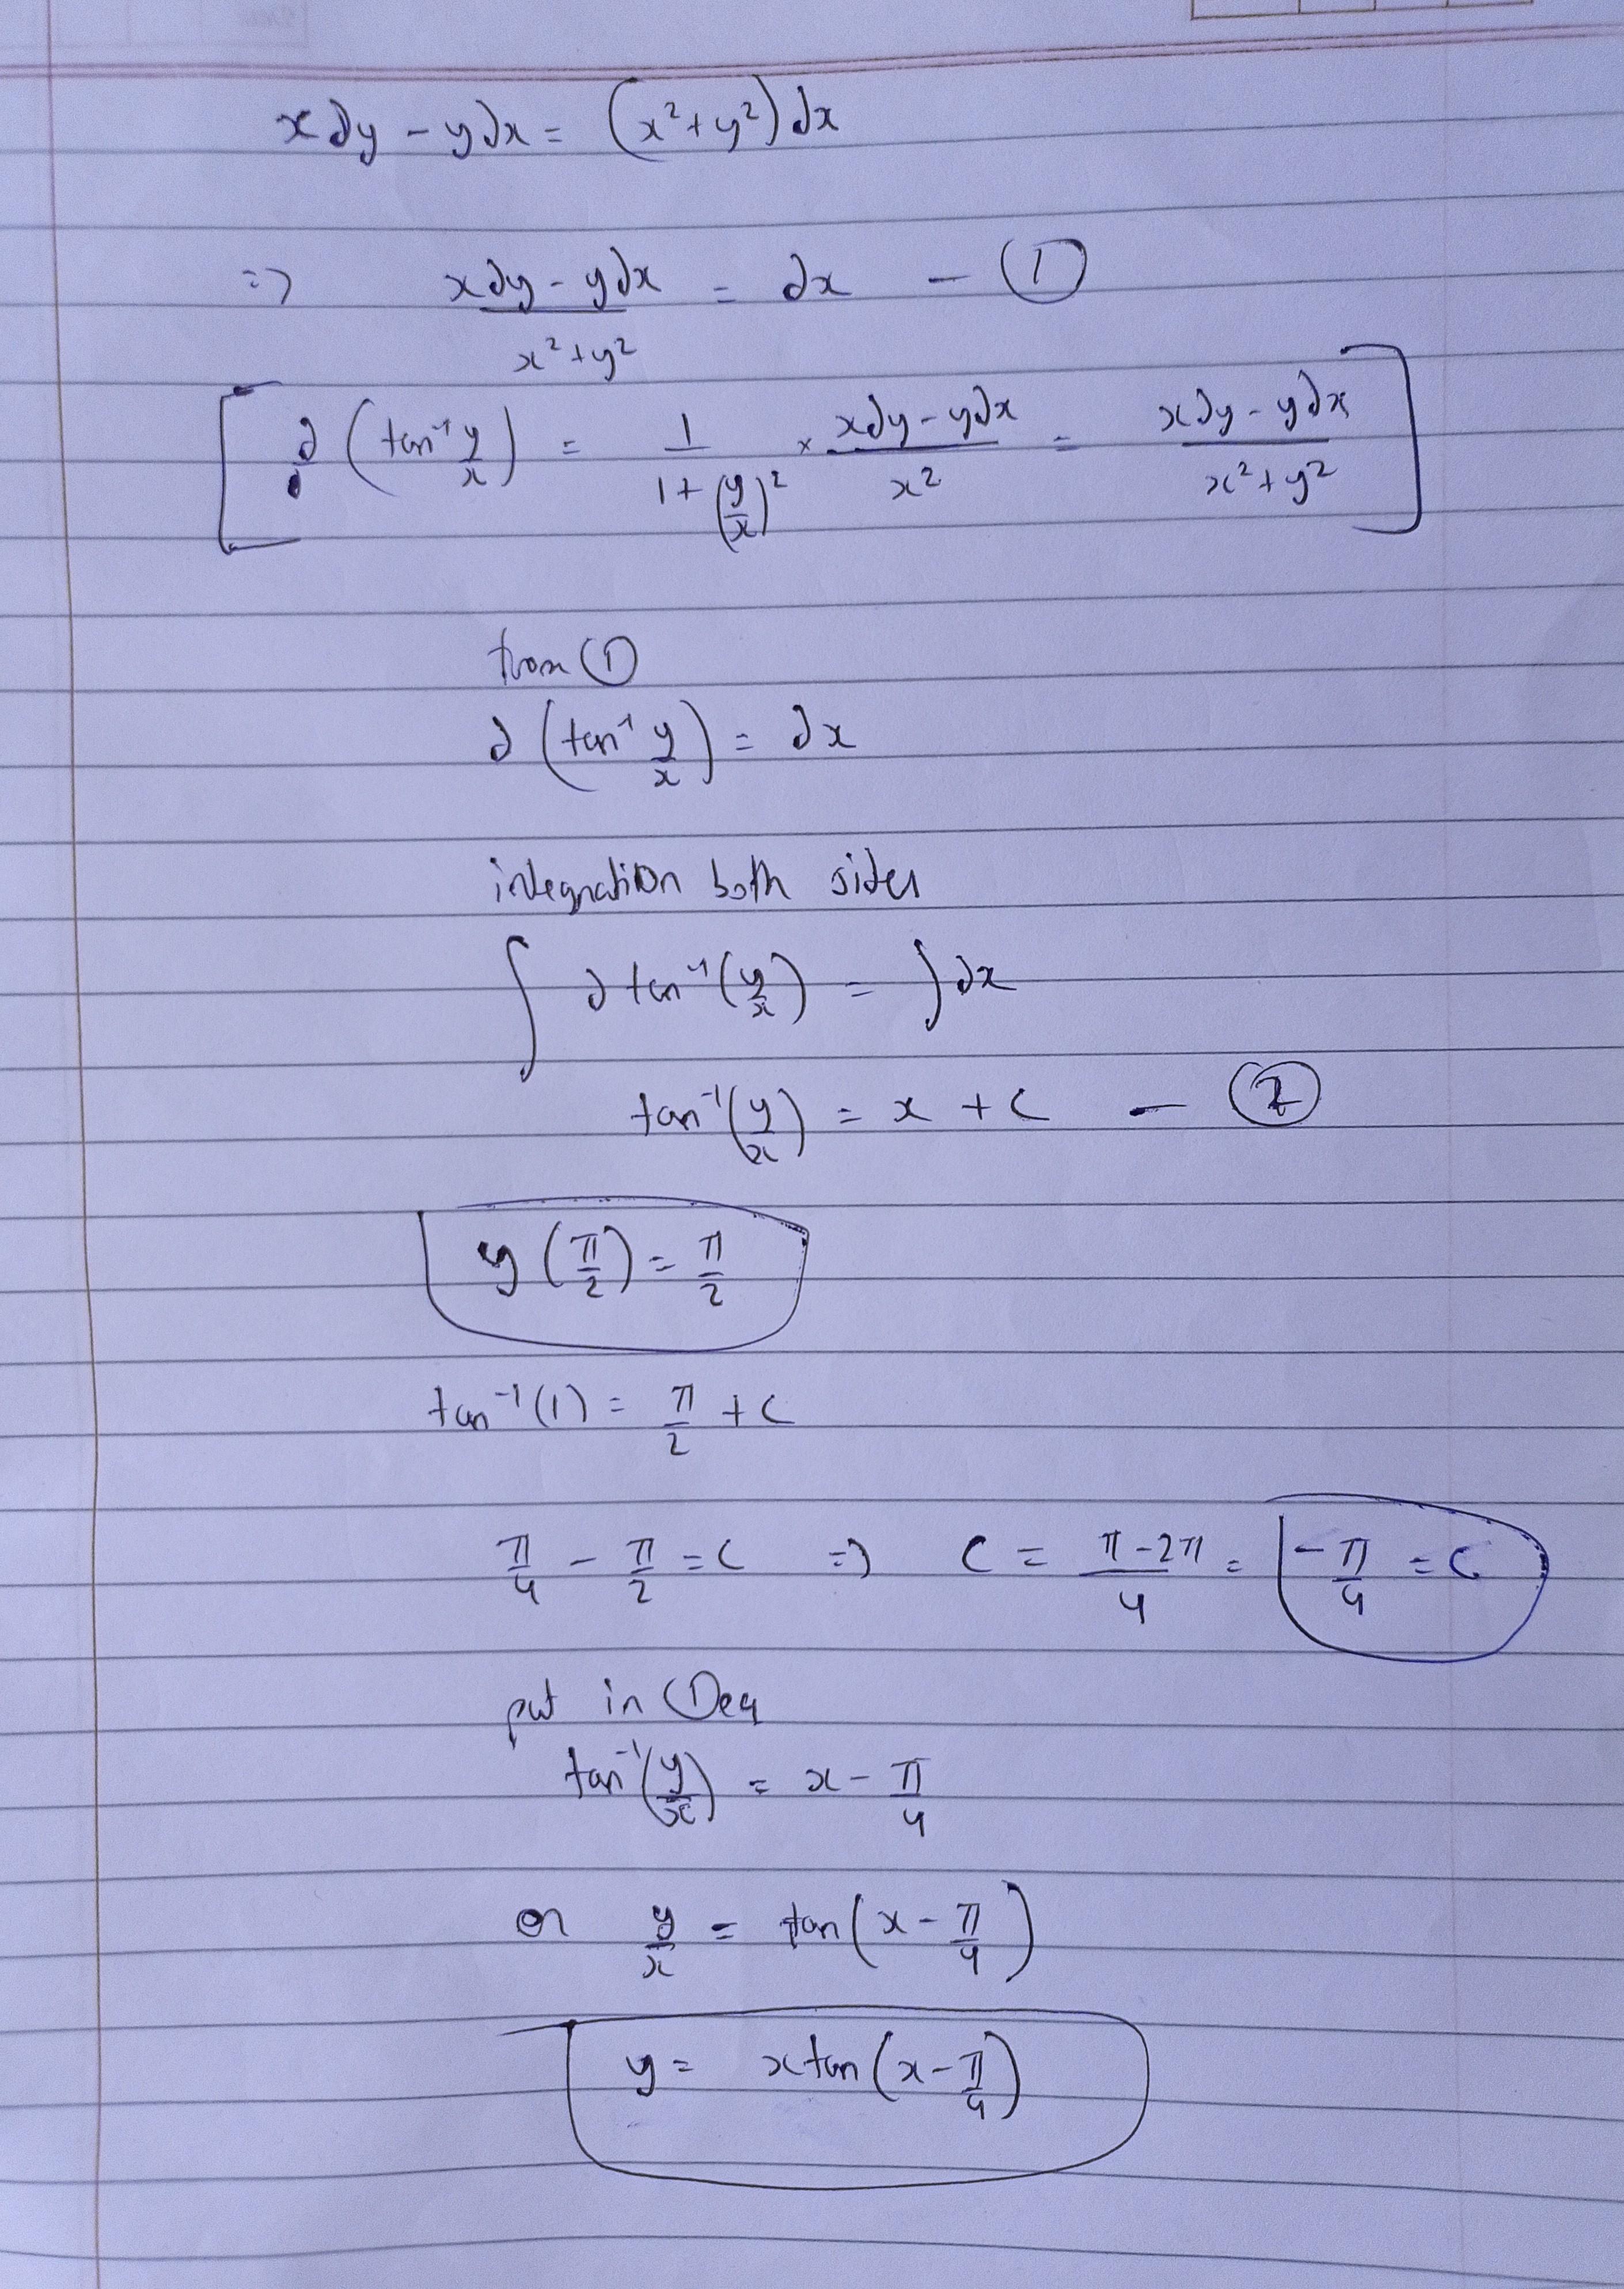 x dy - y dx = (x² + y²) dx
=> (x dy - y dx)/(x² + y²) = dx — ①
[ d (tan⁻¹ y/x) = 1/(1 + (y/x)²) × (x dy - y dx)/x² = (x dy - y dx)/(x² + y²) ]
from ①
d (tan⁻¹ y/x) = dx
integration both sides
∫ d tan⁻¹(y/x) = ∫ dx
tan⁻¹(y/x) = x + c — ②
y(π/2) = π/2
tan⁻¹(1) = π/2 + c
π/4 - π/2 = c => c = (π - 2π)/4 = -π/4 = c
put in ① eq
tan⁻¹(y/x) = x - π/4
or y/x = tan(x - π/4)
y = x tan(x - π/4)